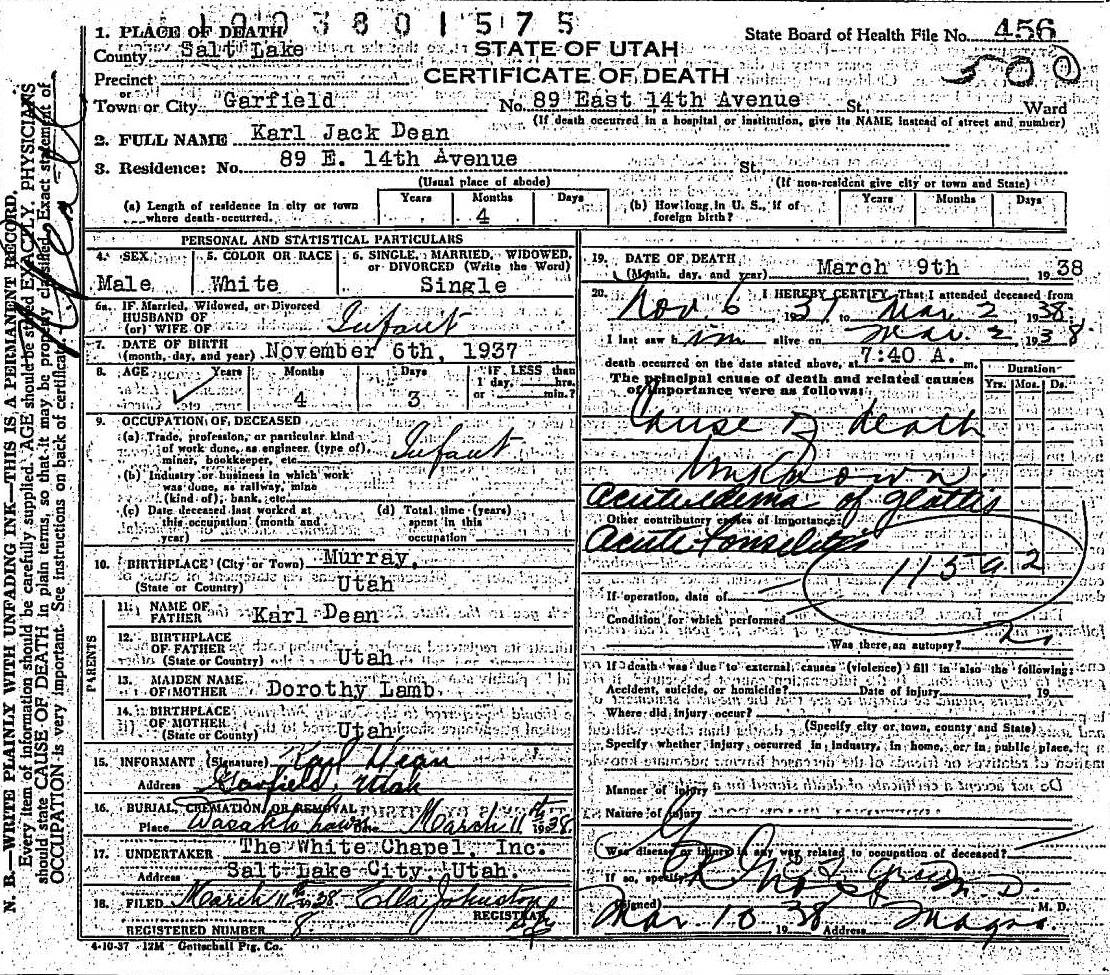 1003801575
1. PLACE OF DEATH
State Board of Health File No. 456
County Salt Lake
STATE OF UTAH
500
Precinct
CERTIFICATE OF DEATH
or
Town or City Garfield No. 89 East 14th Avenue St. Ward
(If death occurred in a hospital or institution, give its NAME instead of street and number)
2. FULL NAME Karl Jack Dean
3. Residence: No. 89 E. 14th Avenue St.
(Usual place of abode) (If non-resident give city or town and State)
(a) Length of residence in city or town where death occurred. Years Months 4 Days
(b) How long in U. S., if of foreign birth? Years Months Days
PERSONAL AND STATISTICAL PARTICULARS
4. SEX 5. COLOR OR RACE 6. SINGLE, MARRIED, WIDOWED, or DIVORCED (Write the Word)
Male White Single
6a. IF Married, Widowed, or Divorced
HUSBAND OF
(or) WIFE OF Infant
7. DATE OF BIRTH
(month, day, and year) November 6th, 1937
8. AGE Years Months Days IF LESS than
1 day, hrs.
or min.?
4 3
9. OCCUPATION OF DECEASED
(a) Trade, profession, or particular kind
of work done, as engineer (type of),
miner, bookkeeper, etc. Infant
(b) Industry or business in which work
was done, as railway, mine
(kind of), bank, etc.
(c) Date deceased last worked at
this occupation (month and
year)
(d) Total time (years)
spent in this
occupation
10. BIRTHPLACE (City or Town) Murray,
(State or Country) Utah
PARENTS
11. NAME OF
FATHER Karl Dean
12. BIRTHPLACE
OF FATHER
(State or Country) Utah
13. MAIDEN NAME
OF MOTHER Dorothy Lamb
14. BIRTHPLACE
OF MOTHER
(State or Country) Utah
15. INFORMANT (Signature) Karl Dean
Address Garfield, Utah
16. BURIAL, CREMATION, OR REMOVAL
Place Wasatch Lawn Date March 11th 1938
17. UNDERTAKER The White Chapel, Inc.
Address Salt Lake City, Utah.
18. FILED March 11th 1938 Ella Johnston
REGISTRAR
REGISTERED NUMBER 8
4-10-37 12M Gottschall Ptg. Co.
19. DATE OF DEATH
(Month, day, and year) March 9th 1938
20. I HEREBY CERTIFY, That I attended deceased from
Nov. 6 1937 to Mar. 2 1938
I last saw him alive on Mar. 2 1938
death occurred on the date stated above, at 7:40 A. m.
The principal cause of death and related causes
of importance were as follows:
Duration
Yrs. Mos. Ds.
Cause of death
unknown
acute edema of glottis
Other contributory causes of importance:
acute tonselitis
115 a 2
If operation, date of
Condition for which performed
Was there an autopsy? no
If death was due to external causes (violence) fill in also the following:
Accident, suicide, or homicide? Date of injury 19
Where did injury occur?
(Specify city or town, county and State)
Specify whether injury occurred in industry, in home, or in public place.
Manner of injury
Nature of injury
Was disease or injury in any way related to occupation of deceased?
If so, specify
(Signed) M. D.
Mar. 10 1938 Address Magna
N. B.—WRITE PLAINLY WITH UNFADING INK—THIS IS A PERMANENT RECORD.
Every item of information should be carefully supplied. AGE should be stated EXACTLY. PHYSICIANS
should state CAUSE OF DEATH in plain terms, so that it may be properly classified. Exact statement of
OCCUPATION is very important. See instructions on back of certificate.